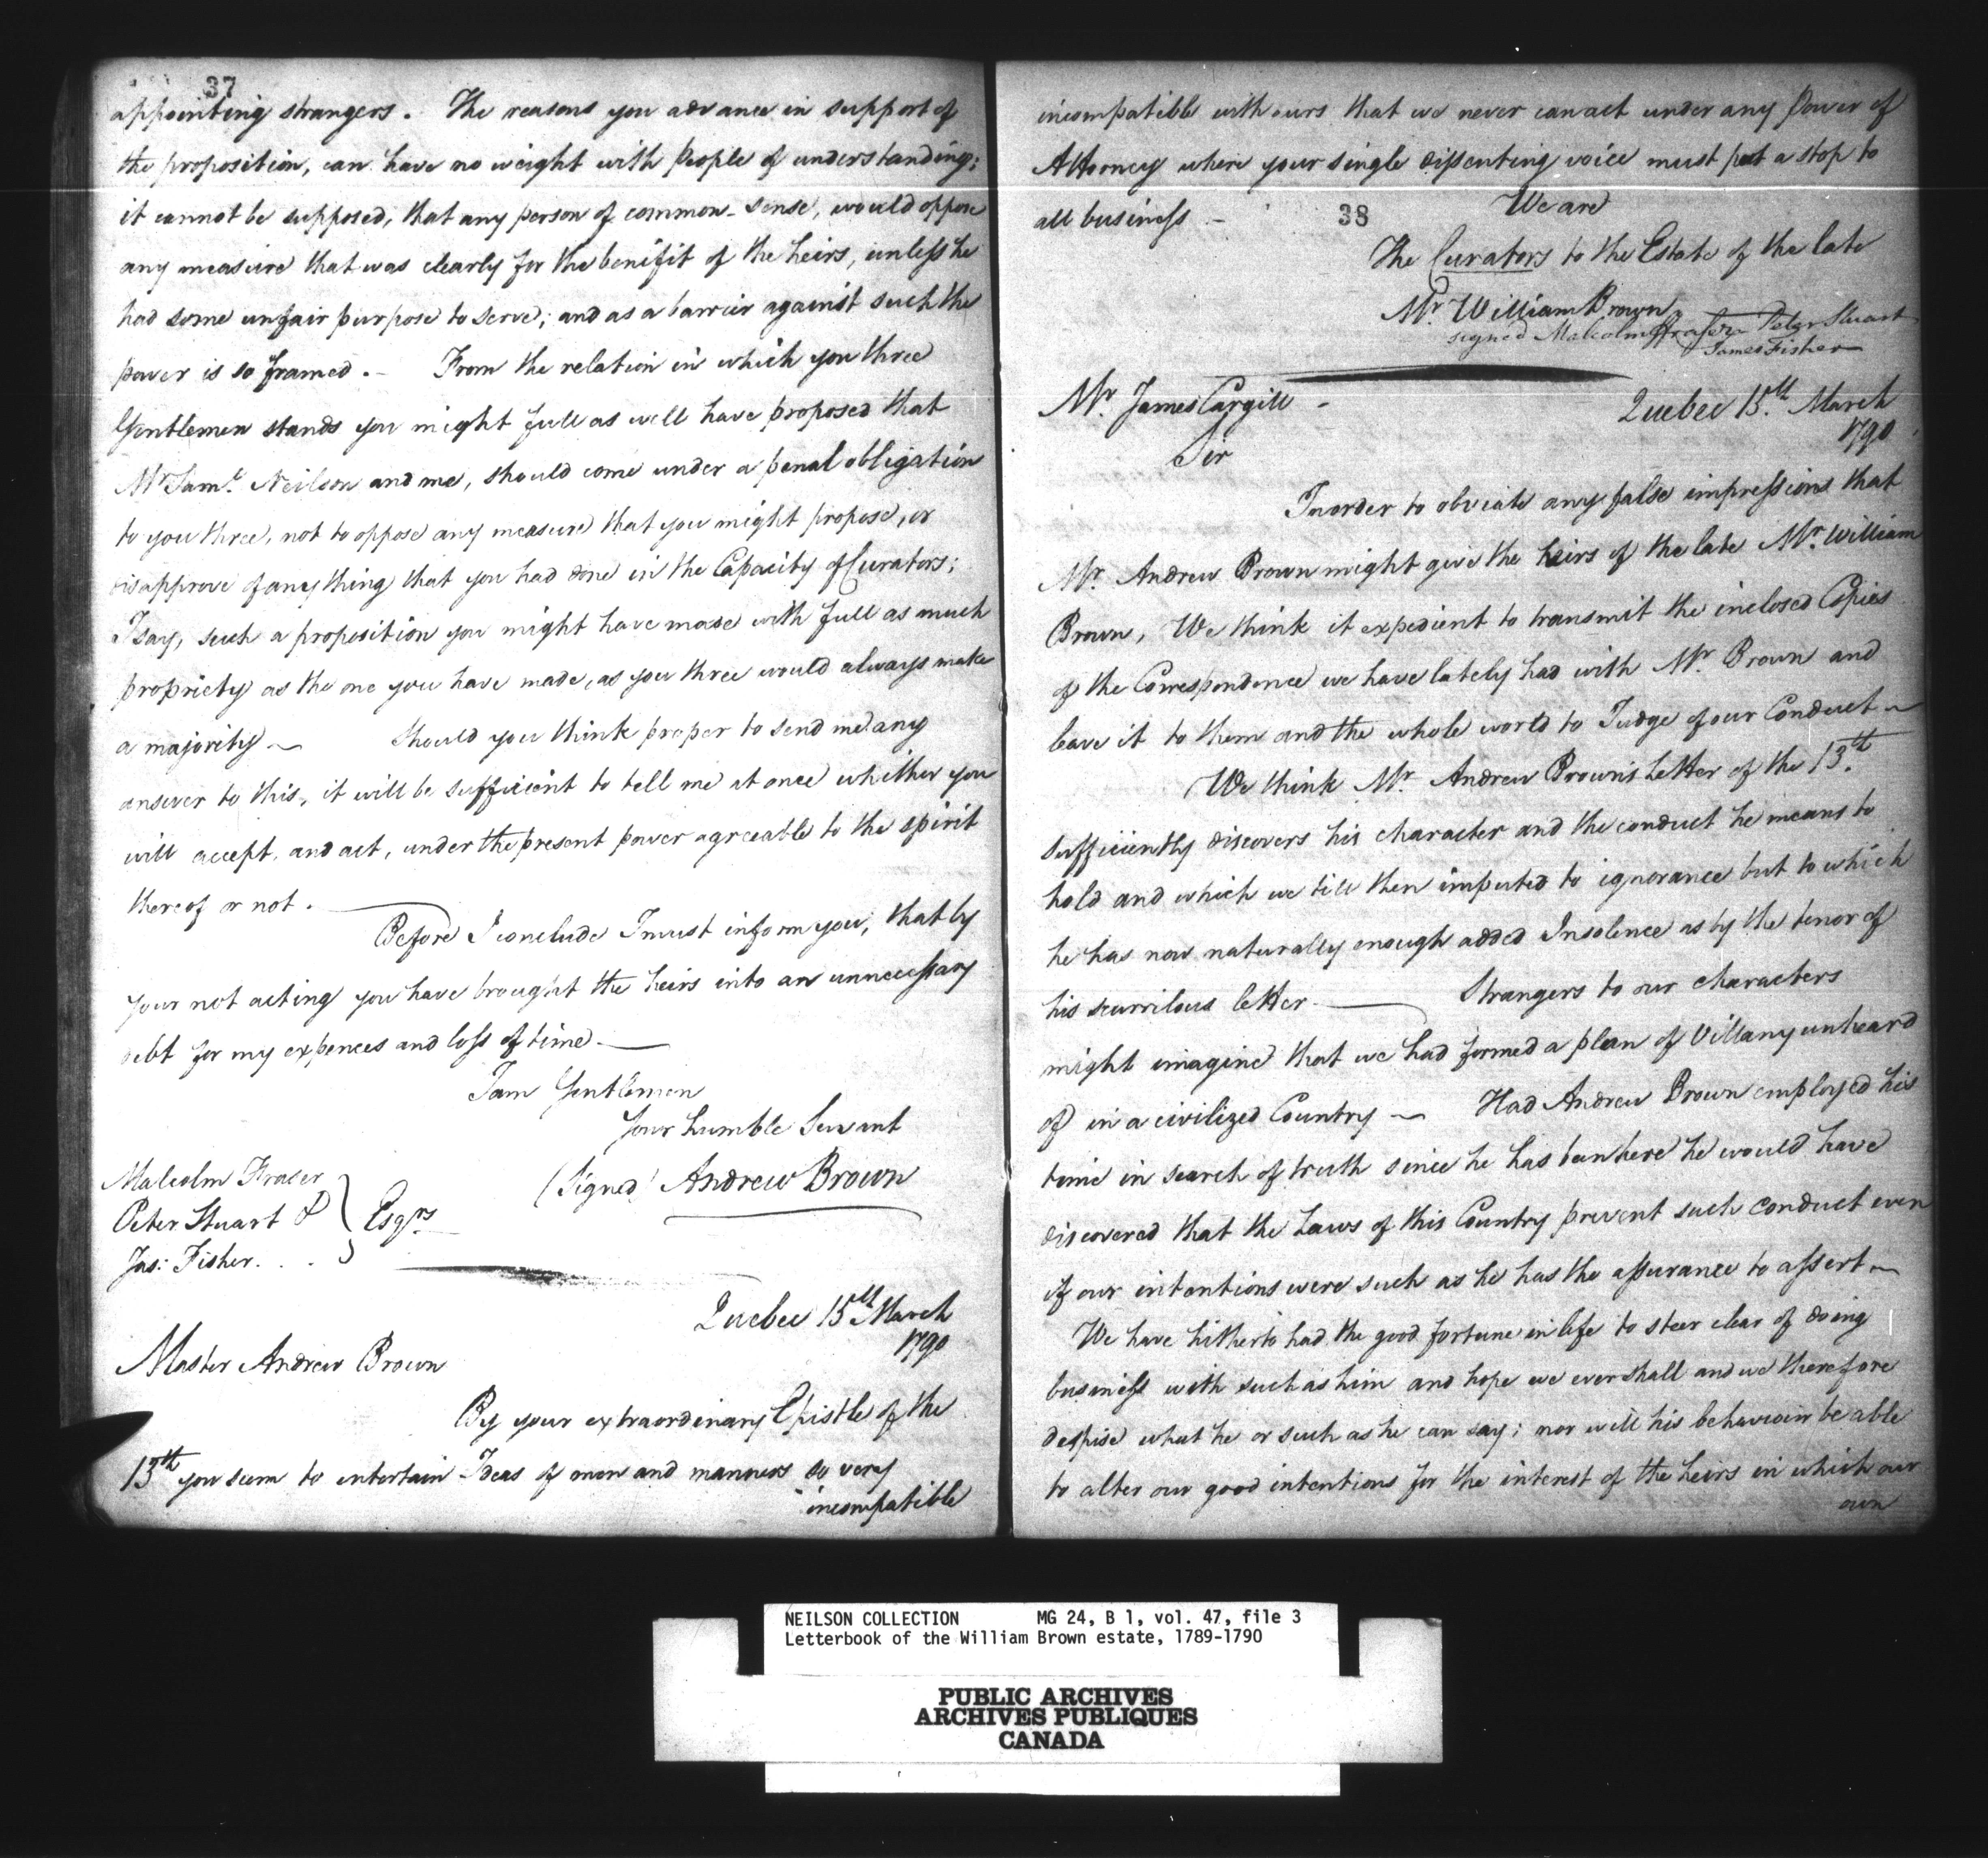 37
appointing strangers. The reasons you advance in support of
the proposition, can have no weight with People of understanding;
it cannot be supposed, that any person of common-sense, would oppose
any measure that was clearly for the benifit of the heirs, unless he
had some unfair purpose to serve; and as a barrier against such the
power is so framed. - From the relation in which you three
Gentlemen stands you might full as well have proposed that
Mr. Saml. Neilson and me, should come under a penal obligation
to you three, not to oppose any measure that you might propose, or
disapprove of any thing that you had done in the Capacity of Curators;
I say, such a proposition you might have made with full as much
propriety as the one you have made, as you three would always make
a majority — Should you think proper to send me any
answer to this, it will be sufficient to tell me at once whether you
will accept, and act, under the present power agreeable to the spirit
thereof or not. —
Before I conclude I must inform you, that by
your not acting you have brought the heirs into an unnecessary
debt for my expences and loss of time —
I am Gentlemen
Your humble Servant
(Signed) Andrew Brown
Malcolm Fraser
Peter Stuart &
Jas: Fisher. . . } Esqrs
Quebec 15th March
1790
Master Andrew Brown
By your extraordinary Epistle of the
13th you seem to entertain Ideas of men and manners so very
incompatible
incompatible with ours that we never can act under any Power of
Attorney where your single dissenting voice must put a stop to
all business - 38 We are
The Curators to the Estate of the late
Mr. William Brown
signed Malcolm Fraser Peter Stuart
James Fisher
Mr. James Cargill - Quebec 15th. March
1790
Sir
In order to obviate any false impressions that
Mr. Andrew Brown might give the heirs of the late Mr. William
Brown, We think it expedient to transmit the inclosed Copies
of the Correspondence we have lately had with Mr. Brown and
leave it to them and the whole world to Judge of our Conduct —
We think Mr. Andrew Brown's Letter of the 13th.
sufficiently discovers his character and the conduct he means to
hold and which we till then imputed to ignorance but to which
he has now naturally enough added Insolence as by the tenor of
his scurrilous letter — Strangers to our characters
might imagine that we had formed a plan of Villany unheard
of in a civilized Country — Had Andrew Brown employed his
time in search of truth since he has been here he would have
discovered that the Laws of this Country prevent such conduct even
if our intentions were such as he has the assurance to assert —
We have hitherto had the good fortune in life to steer clear of doing
business with such as him and hope we ever shall and we therefore
despise what he or such as he can say; nor will his behaviour be able
to alter our good intentions for the interest of the heirs in which our
own
NEILSON COLLECTION MG 24, B 1, vol. 47, file 3
Letterbook of the William Brown estate, 1789-1790
PUBLIC ARCHIVES
ARCHIVES PUBLIQUES
CANADA